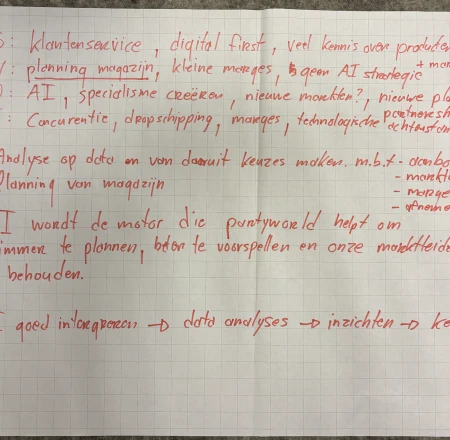 S: Klantenservice, digital first, veel kennis over producten
: planning magazijn, kleine marges, geen AI strategie + mar
: AI, specialisme creëren, nieuwe markten?, nieuwe pl
: Concurentie, dropschipping, marges, technologische achterstan
partnersh
Analyse op data en van daaruit keuzes maken. m.b.t - aanbo
Planning van magazijn - markt
- marge
- afneme
I wordt de motor die partyworld helpt om
immen te plannen, beter te voorspellen en onze marktleide
behouden.
I goed integreren → data analyses → inzichten → ke